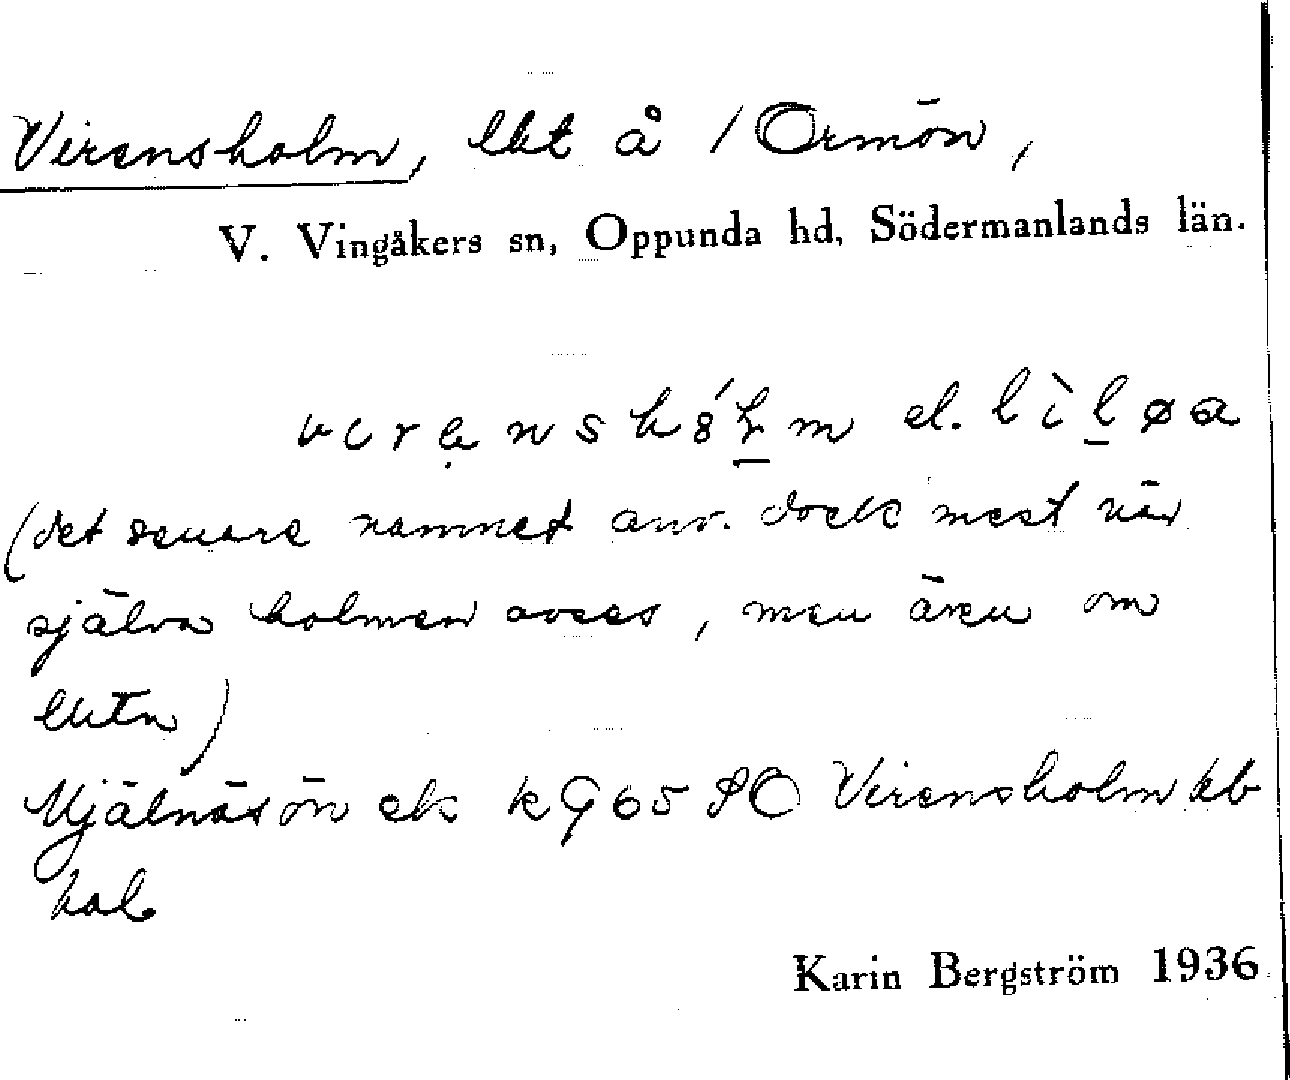 Virensholm, lht å 1 Ormön,
V. Vingåkers sn, Oppunda hd, Södermanlands län.
el.
(det senare namnet anv. dock mest när
själva holmen avses, men även om
lhtn)
Mjälnäsön ek k 9 65 SO Virensholm kb
hal.
Karin Bergström 1936